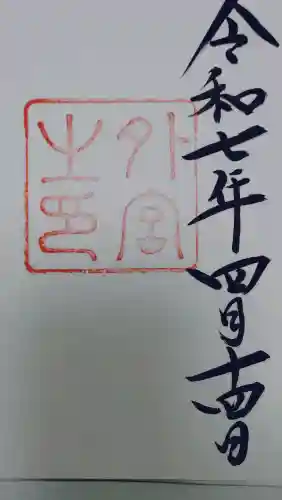 令和七年四月十四日
外宮
之印